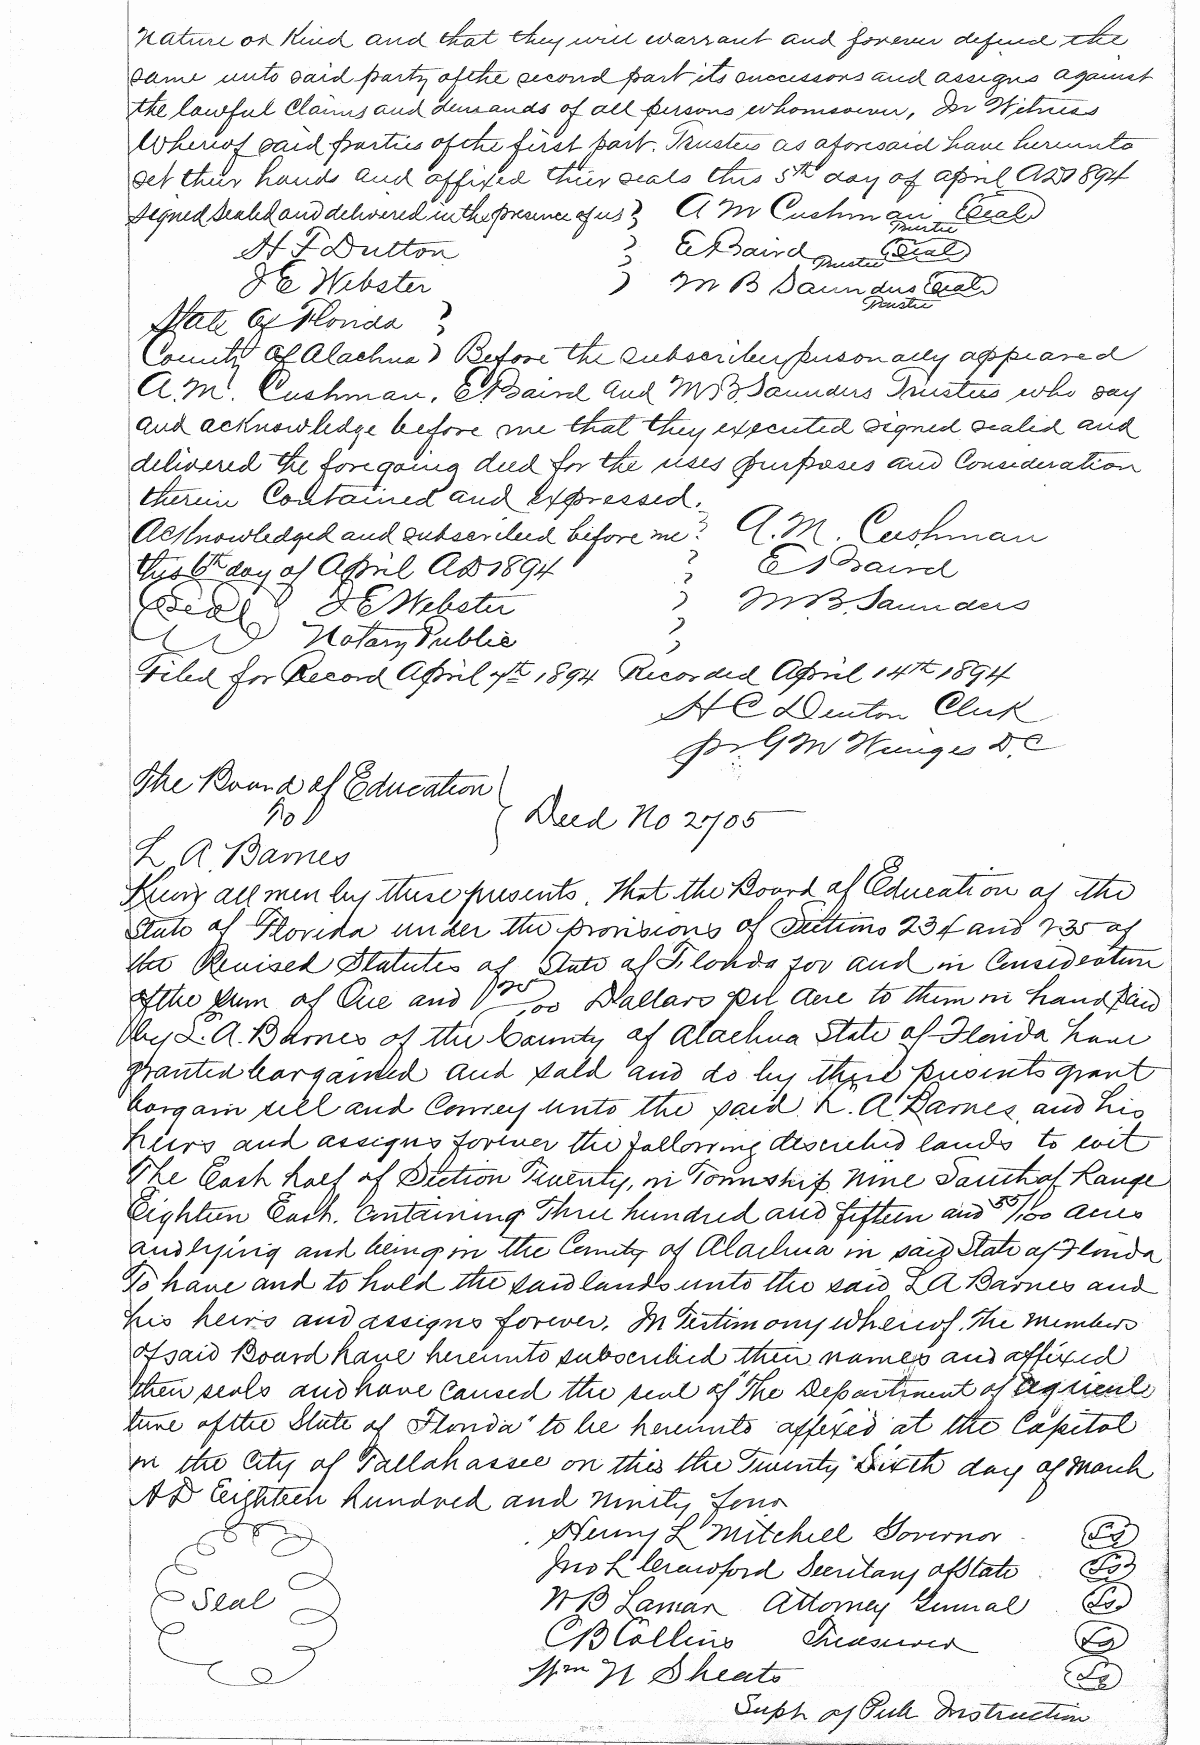 nature or Kind and that they will warrant and forever defend the
same unto said party of the second part its successors and assigns against
the lawful Claims and demands of all persons whomsoever, In Witness
Whereof said parties of the first part. Trustees as aforesaid have hereunto
set their hands and affixed their seals this 5th day of april AD 1894
signed sealed and delivered in the presence of us } A M Cushman (Seal)
Trustee
H F Dutton } E Baird (Seal)
Trustee
J E Webster } M B Saunders (Seal)
Trustee
State of Florida }
County of Alachua } Before the subscriber personally appeared
A.M. Cushman, E Baird and M B. Saunders Trustees who say
and acknowledge before me that they executed signed sealed and
delivered the foregoing deed for the uses purposes and Consideration
therein Contained and expressed.
Acknowledged and subscribed before me } A. M. Cushman
this 6th day of April AD 1894 } E Baird
(Seal) J E Webster } M B. Saunders
Notary Public }
Filed for Record April 7th 1894 Recorded April 14th 1894
H C Denton Clerk
pr. G M D C
The Board of Education
To } Deed No 2705
L A. Barnes
Know all men by these presents, That the Board of Education of the
State of Florida under the provisions of Sections 234 and 235 of
the Revised Statutes of State of Florida for and in Consideration
of the sum of One and 25/100 Dollars per Acre to them in hand paid
by L. A. Barnes of the County of Alachua State of Florida have
granted bargained and sold and do by these presents grant
bargain sell and Convey unto the said L. A Barnes, and his
heirs and assigns forever the following described lands to wit
The East half of Section Twenty, in Township nine South of Range
Eighteen East. Containing Three hundred and fifteen and 55/100 acres
and lying and being in the County of Alachua in said State of Florida
To have and to hold the said lands unto the said L A Barnes and
his heirs and assigns forever. In Testimony whereof. The Members
of said Board have hereunto subscribed their names and affixed
their seals and have caused the seal of "The Department of Agricul
ture of the State of Florida" to be hereunto affixed at the Capitol
in the City of Tallahassee on this the Twenty Sixth day of March
AD Eighteen hundred and ninity four
Henry L Mitchell Governor (LS)
Jno L Crawford Secretary of State (LS)
Seal W B Lamar Attorney General (LS)
C B Collins Treasurer (LS)
Wm N Sheats (LS)
Supt of Pub Instruction